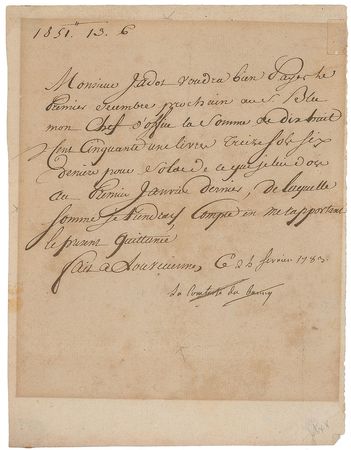 1851.ᵗᵗ 13. 6
Monsieur Jadot voudra bien Payer le
Premier Decembre prochain au S. Bleu
mon Chef d'office la Somme de dix huit
Cent Cinquante une livres Treize sols six
deniers pour Solde de ce que je lui dois
au Premier Janvier dernier, de laquelle
Somme je tiendray Compte en me rapportant
le present quittancé,
fait a Louveciennes Ce 24 fevrier 1783
La Comtesse du Barry